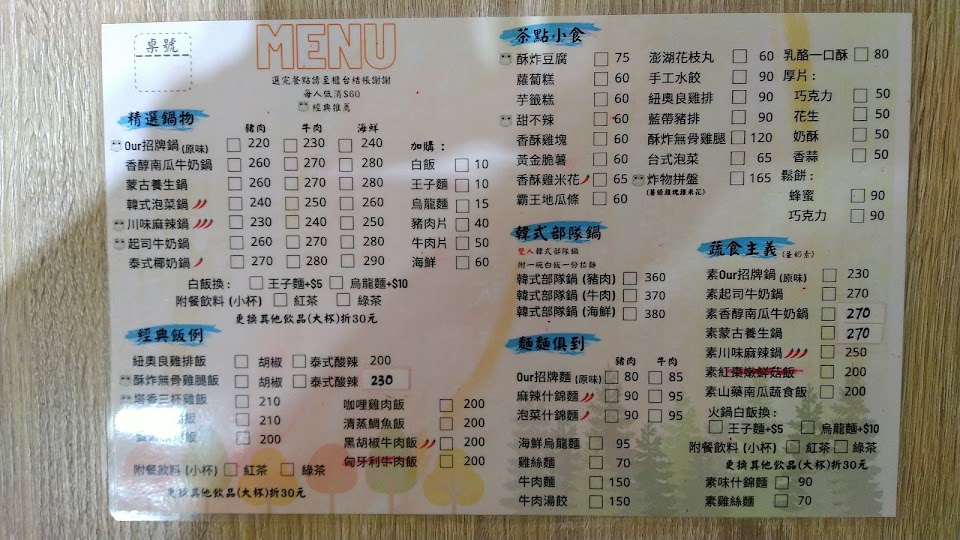 桌號
MENU
選完餐點請至櫃台結帳謝謝
每人低消$60
經典推薦
精選鍋物
豬肉 牛肉 海鮮
Our招牌鍋(原味) 220 230 240
香醇南瓜牛奶鍋 260 270 280
蒙古養生鍋 260 270 280
韓式泡菜鍋 240 250 260
川味麻辣鍋 230 240 250
起司牛奶鍋 260 270 280
泰式椰奶鍋 270 280 290
加購:
白飯 10
王子麵 10
烏龍麵 15
豬肉片 40
牛肉片 50
海鮮 60
白飯換: 王子麵+$5 烏龍麵+$10
附餐飲料(小杯) 紅茶 綠茶
更換其他飲品(大杯)折30元
經典飯例
紐奧良雞排飯 胡椒 泰式酸辣 200
酥炸無骨雞腿飯 胡椒 泰式酸辣 230
塔香三杯雞飯 210
飯 210
200
咖哩雞肉飯 200
清蒸鯛魚飯 200
黑胡椒牛肉飯 200
匈牙利牛肉飯 200
附餐飲料(小杯) 紅茶 綠茶
更換其他飲品(大杯)折30元
茶點小食
酥炸豆腐 75
蘿蔔糕 60
芋籤糕 60
甜不辣 60
香酥雞塊 60
黃金脆薯 60
香酥雞米花 65
霸王地瓜條 60
澎湖花枝丸 60
手工水餃 90
紐奧良雞排 90
藍帶豬排 90
酥炸無骨雞腿 120
台式泡菜 65
炸物拼盤 165
(薯條雞塊雞米花)
乳酪一口酥 80
厚片:
巧克力 50
花生 50
奶酥 50
香蒜 50
鬆餅:
蜂蜜 90
巧克力 90
韓式部隊鍋
雙人韓式部隊鍋
附一碗白飯一份拉麵
韓式部隊鍋(豬肉) 360
韓式部隊鍋(牛肉) 370
韓式部隊鍋(海鮮) 380
麵麵俱到
豬肉 牛肉
Our招牌麵(原味) 80 85
麻辣什錦麵 90 95
泡菜什錦麵 90 95
海鮮烏龍麵 95
雞絲麵 70
牛肉麵 150
牛肉湯餃 150
蔬食主義(蛋奶素)
素Our招牌鍋(原味) 230
素起司牛奶鍋 270
素香醇南瓜牛奶鍋 270
素蒙古養生鍋 270
素川味麻辣鍋 250
素紅棗嫩鮮菇飯 200
素山藥南瓜蔬食飯 200
火鍋白飯換:
王子麵+$5 烏龍麵+$10
附餐飲料(小杯) 紅茶 綠茶
更換其他飲品(大杯)折30元
素味什錦麵 90
素雞絲麵 70